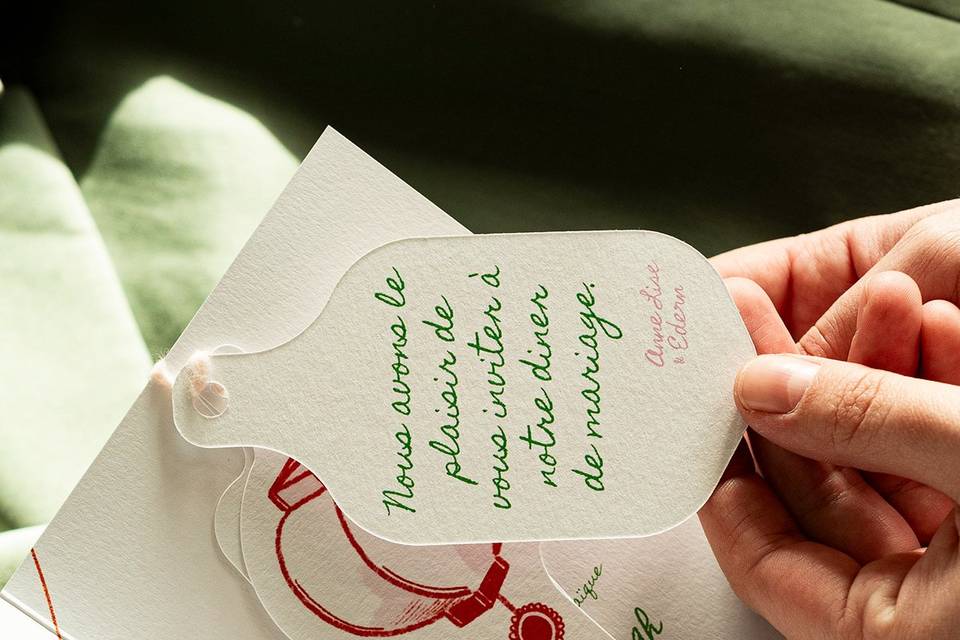 Nous avons le
plaisir de
vous inviter à
notre diner
de mariage.
Anne Lise
& Edern